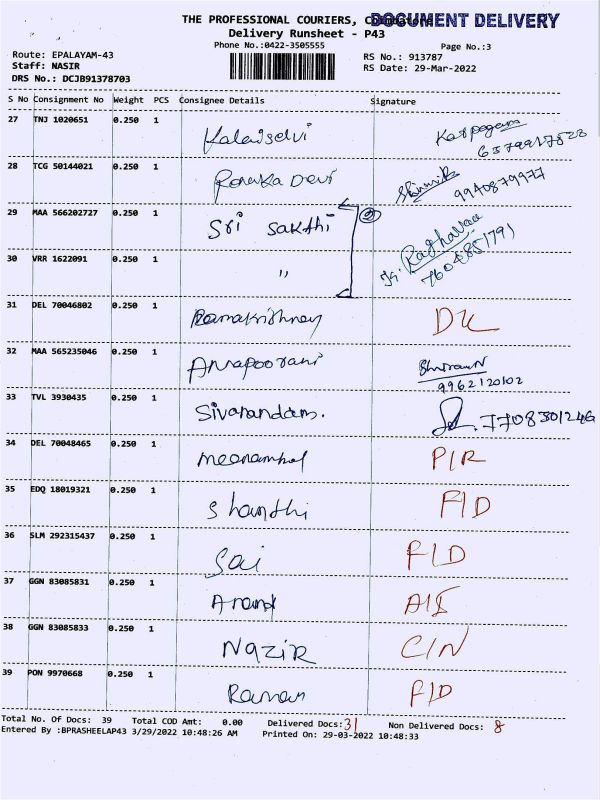 THE PROFESSIONAL COURIERS, Coimbatore
DOCUMENT DELIVERY
Delivery Runsheet - P43
Phone No.:0422-3505555
Page No.:3
Route: EPALAYAM-43
RS No.: 913787
Staff: NASIR
RS Date: 29-Mar-2022
DRS No.: DCJB91378703
S No Consignment No Weight PCS Consignee Details Signature
27 TNJ 1020651 0.250 1 Kalaiselvi Karpagam
6379917523
28 TCG 50144021 0.250 1 Renuka Devi
9940879977
29 MAA 566202727 0.250 1 Sri Sakthi 2 Raghavaa
30 VRR 1622091 0.250 1 "
31 DEL 70046802 0.250 1 Ramakrishnan DL
32 MAA 565235046 0.250 1 Annapoorani
9962120102
33 TVL 3930435 0.250 1 Sivanandam. 7708301246
34 DEL 70048465 0.250 1 P/R
35 EDQ 18019321 0.250 1 Shanthi F/D
36 SLM 292315437 0.250 1 Sai F/D
37 GGN 83085831 0.250 1 Anand
38 GGN 83085833 0.250 1 Nazir C/N
39 PON 9970668 0.250 1 Raman F/D
Total No. Of Docs: 39 Total COD Amt: 0.00 Delivered Docs: 31 Non Delivered Docs: 8
Entered By :BPRASHEELAP43 3/29/2022 10:48:26 AM Printed On: 29-03-2022 10:48:33